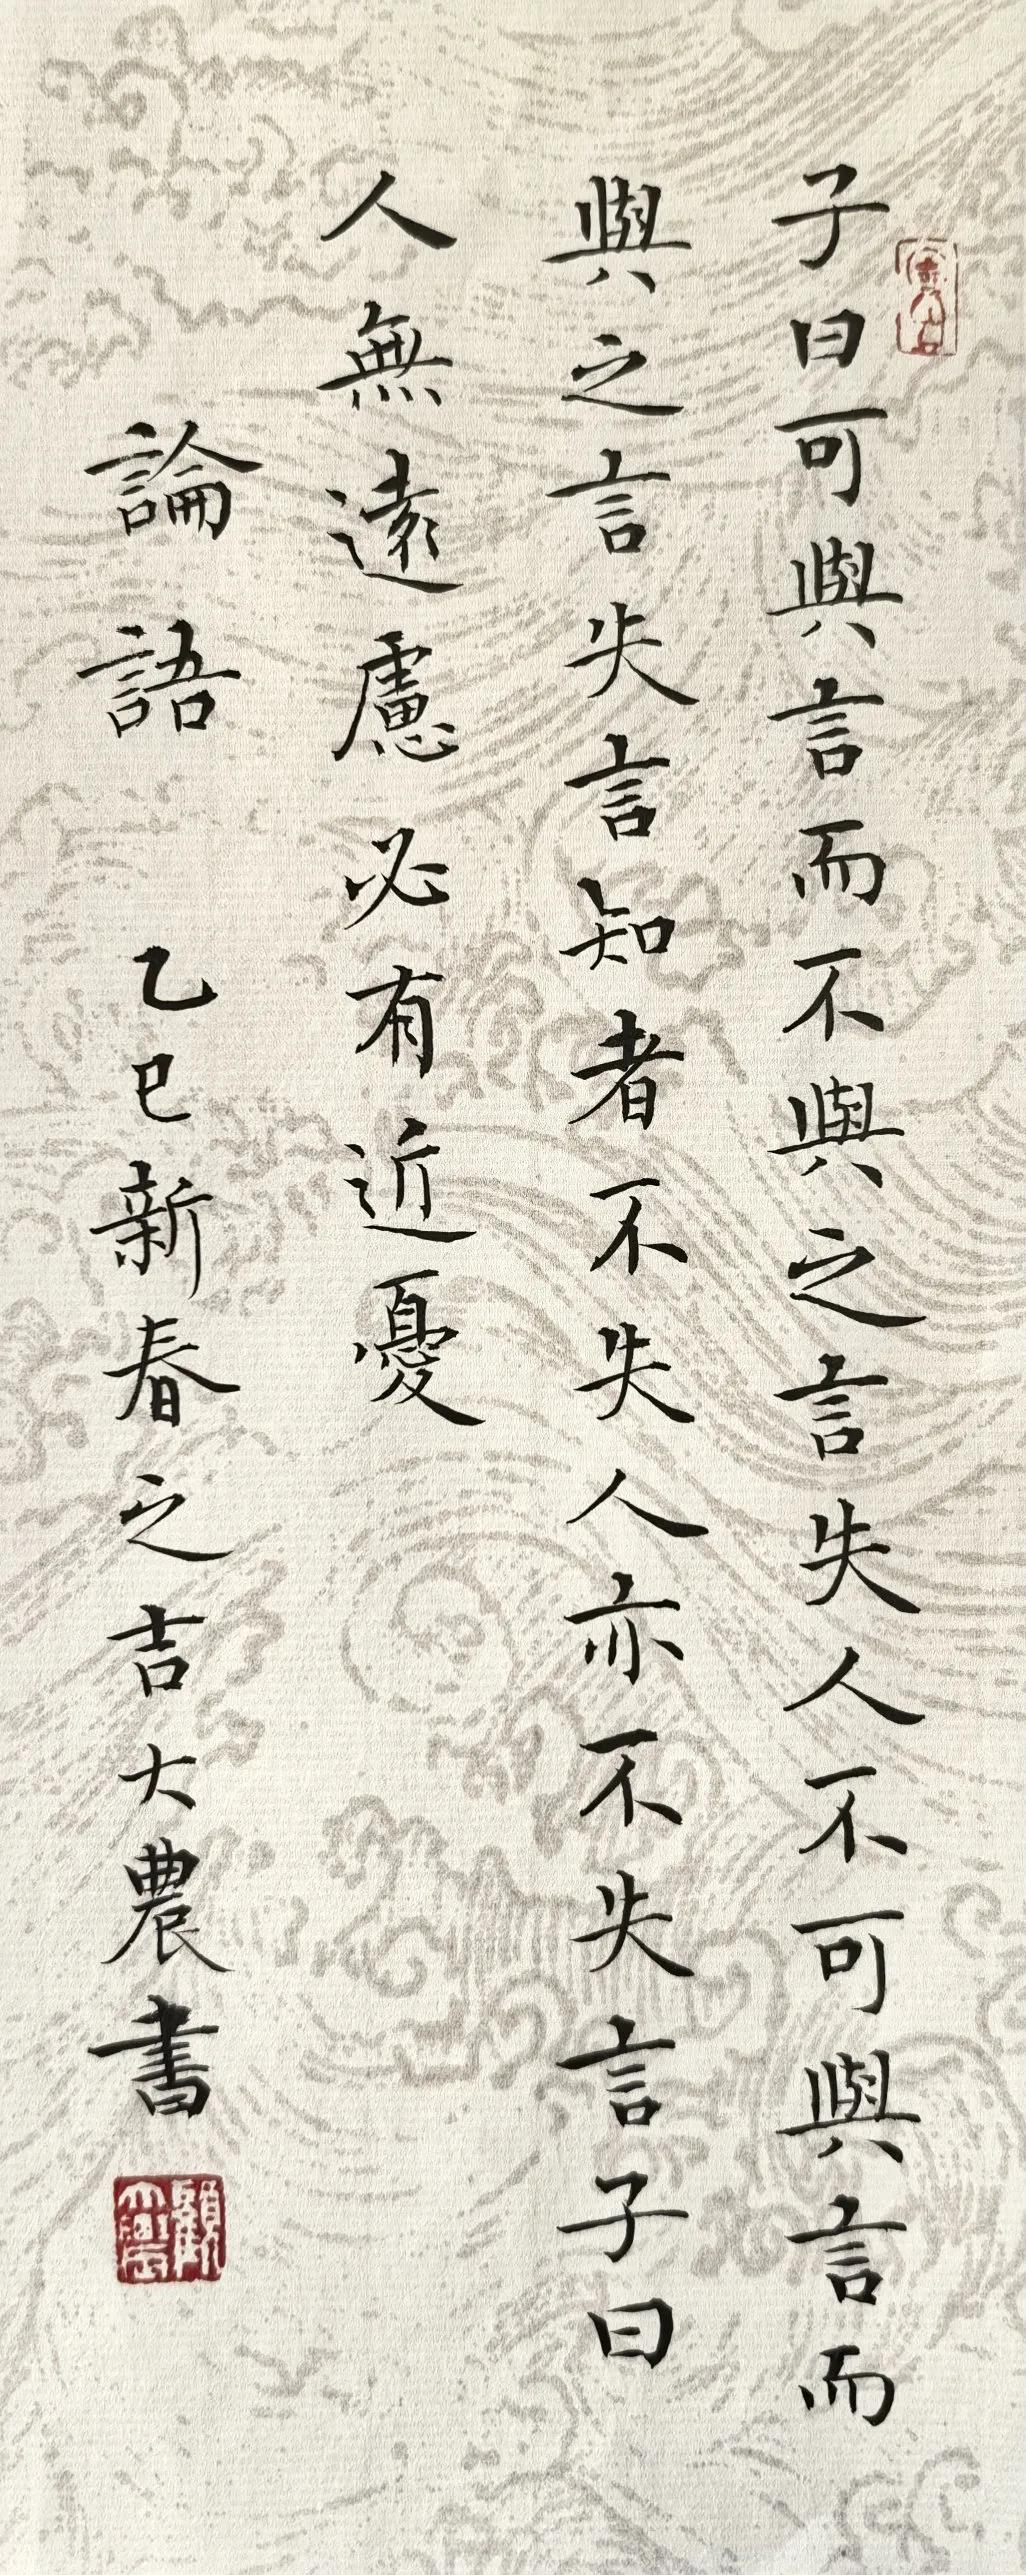 子曰可與言而不與之言失人不可與言而
與之言失言知者不失人亦不失言子曰
人無遠慮必有近憂
論語 乙巳新春之吉大農書